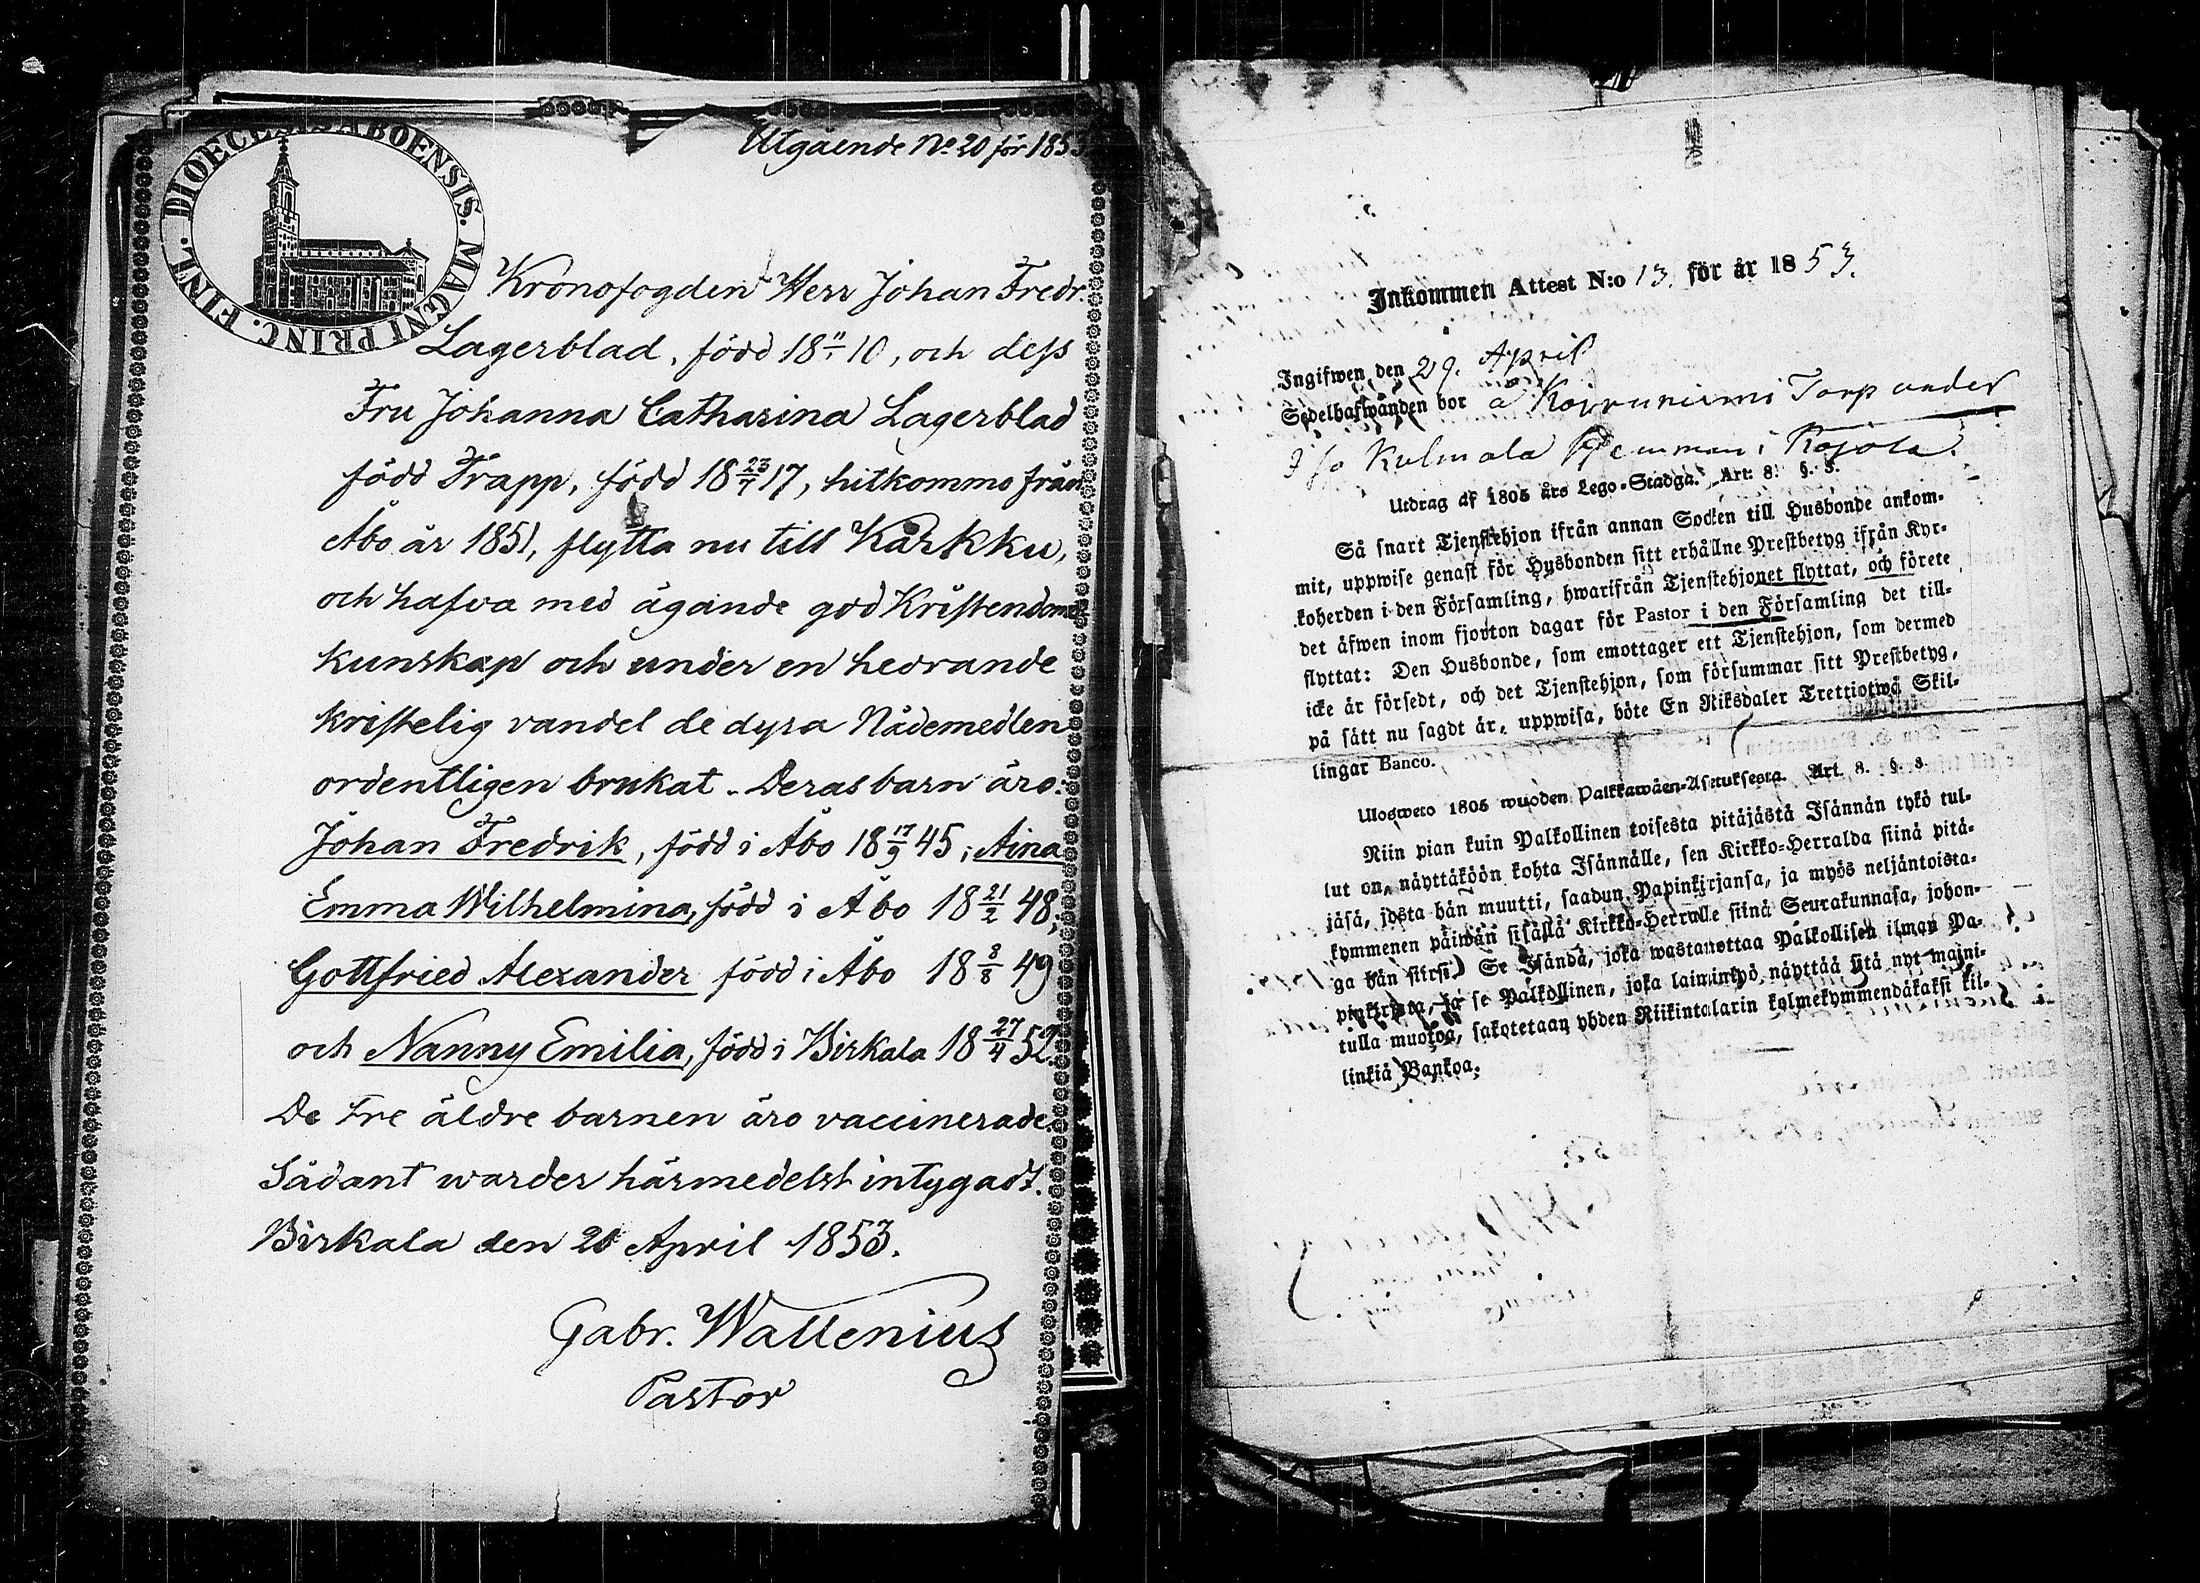 DIOECESIS ABOENSIS. MAGNI PRINC. FINL.
Utgående No 20 för 1853
Kronofogden Herr Johan Fredr.
Lagerblad, född 18 10, och dess
Fru Johanna Catharina Lagerblad
född Trapp, född 18 23/7 17, hitkommo från
Åbo år 1851, flytta nu till Karkku,
och hafva med ägande god Kristendoms
kunskap och under en hedrande
kristelig vandel de dyra Nådemedlen
ordentligen brukat. Deras barn äro:
Johan Fredrik, född i Åbo 18 17/9 45; Aina
Emma Wilhelmina, född i Åbo 18 21/2 48;
Gottfried Alexander född i Åbo 18 8/8 49
och Nanny Emilia, född i Birkala 18 27/4 52.
De tre äldre barnen äro vaccinerade.
Sådant warder härmedelst intygadt.
Birkala den 20 April 1853.
Gabr. Wallenius
Pastor
Inkommen Attest N:o 13. för år 1853.
Ingifwen den 29. April
Sedelhafwanden bor å Koivuniemi Torp under
Iso Kulmala Hemman i Kojola.
Utdrag af 1805 års Lego-Stadga. Art: 8. §. 3.
Så snart Tjenstehjon ifrån annan Socken till Husbonde ankom-
mit, uppwise genast för Husbonden sitt erhållne Prestbetyg ifrån Kyr-
koherden i den Församling, hwarifrån Tjenstehjonet flyttat, och förete
det äfwen inom fjorton dagar för Pastor i den Församling det till-
flyttat: Den Husbonde, som emottager ett Tjenstehjon, som dermed
icke är försedt, och det Tjenstehjon, som försummar sitt Prestbetyg,
på sätt nu sagdt är, uppwisa, böte En Riksdaler Trettiotwå Skil-
lingar Banco.
Uloswero 1805 wuoden Palkkawäen-Asetuksesta. Art. 8. §. 3.
Niin pian kuin Palkollinen toisesta pitäjästä Isännän tykö tul-
lut on, näyttäköön kohta Isännälle, sen Kirkko-Herralda siinä pitä-
jäsä, josta hän muutti, saadun Papinkirjansa, ja myös neljäntoista-
kymmenen päiwän sisällä Kirkko-Herralle siinä Seurakunnasa, johon-
ga hän siirsi. Se Isändä, joka wastanottaa Palkollisen ilman Pa-
pinkirjata, ja se Palkollinen, joka laiminlyö näyttää sitä nyt maini-
tulla muotoa, sakotetaan yhden Riikintalarin kolmekymmendäkaksi kil-
linkiä Bankoa.